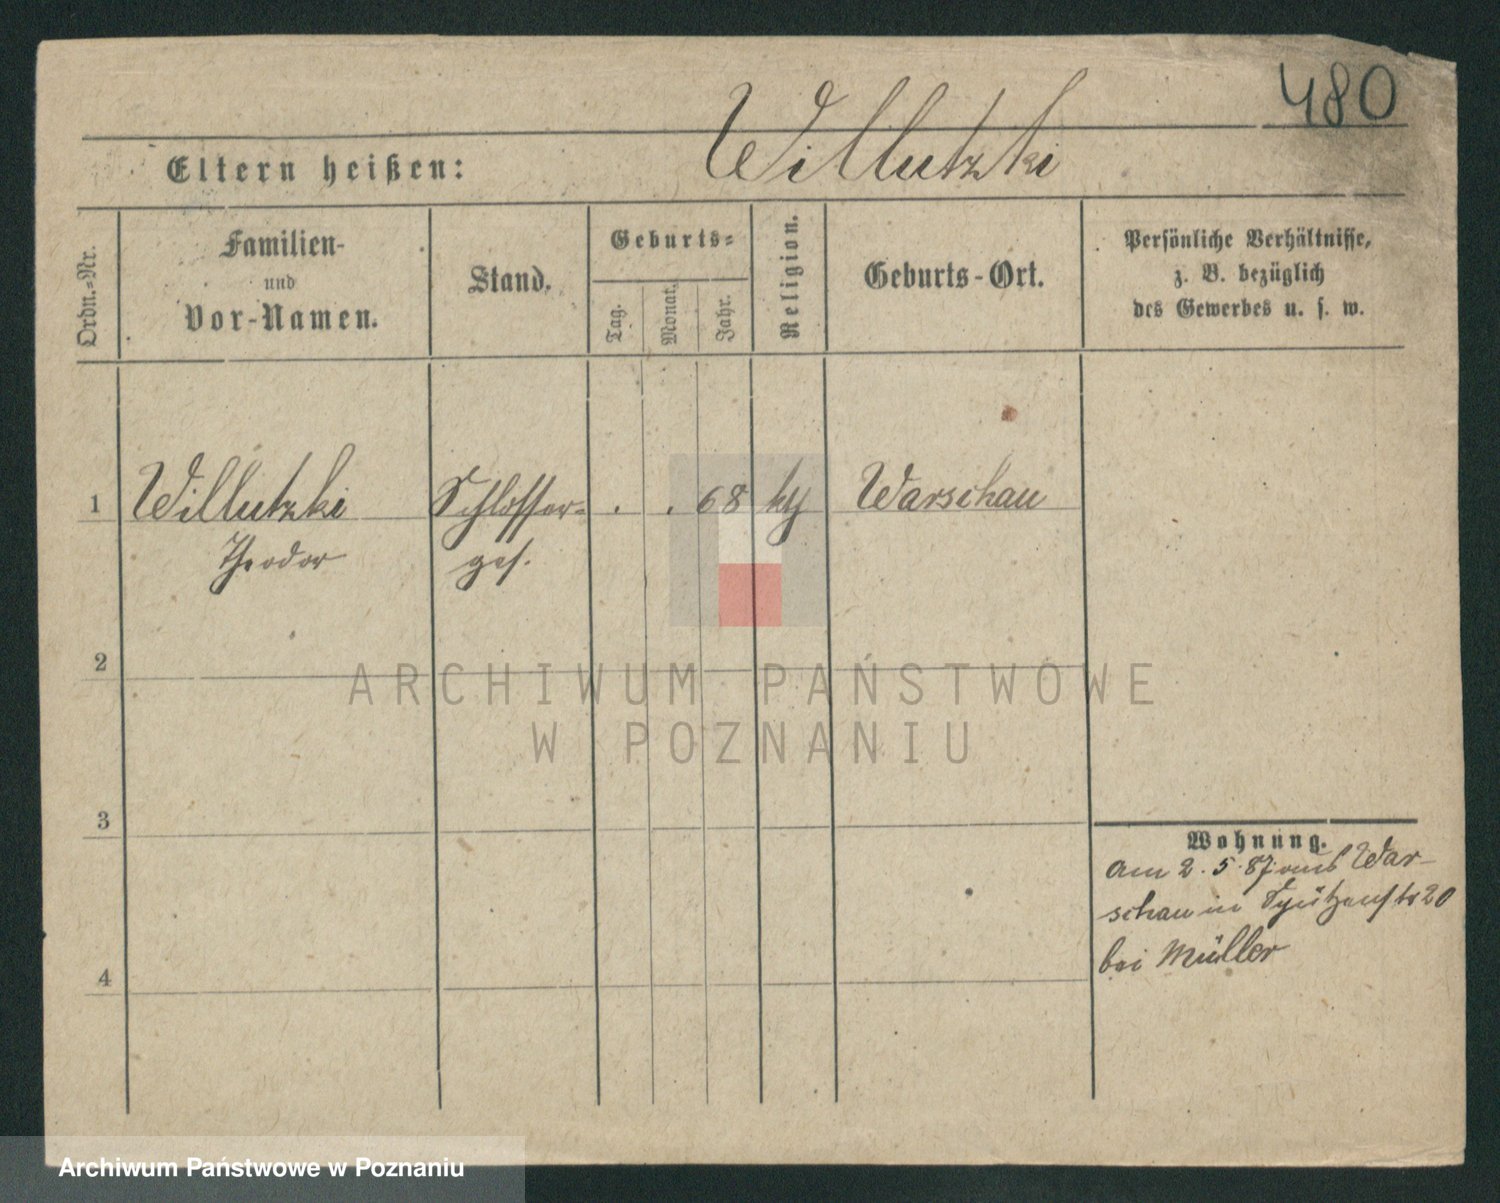 480
Willutzki
Eltern heißen:
Ordn.-Nr.
Familien-
und
Vor-Namen.
Stand.
Geburts-
Tag.
Monat.
Jahr.
Religion.
Geburts-Ort.
Persönliche Verhältnisse,
z. B. bezüglich
des Gewerbes u. s. w.
1 Willutzki Schlosser- . . 68 kth Warschau
Theodor ges.
2
ARCHIWUM PAŃSTWOWE
W POZNANIU
3
Wohnung.
am 2. 5. 87 aus War-
schau in Schützenstr 20
bei Müller
4
Archiwum Państwowe w Poznaniu